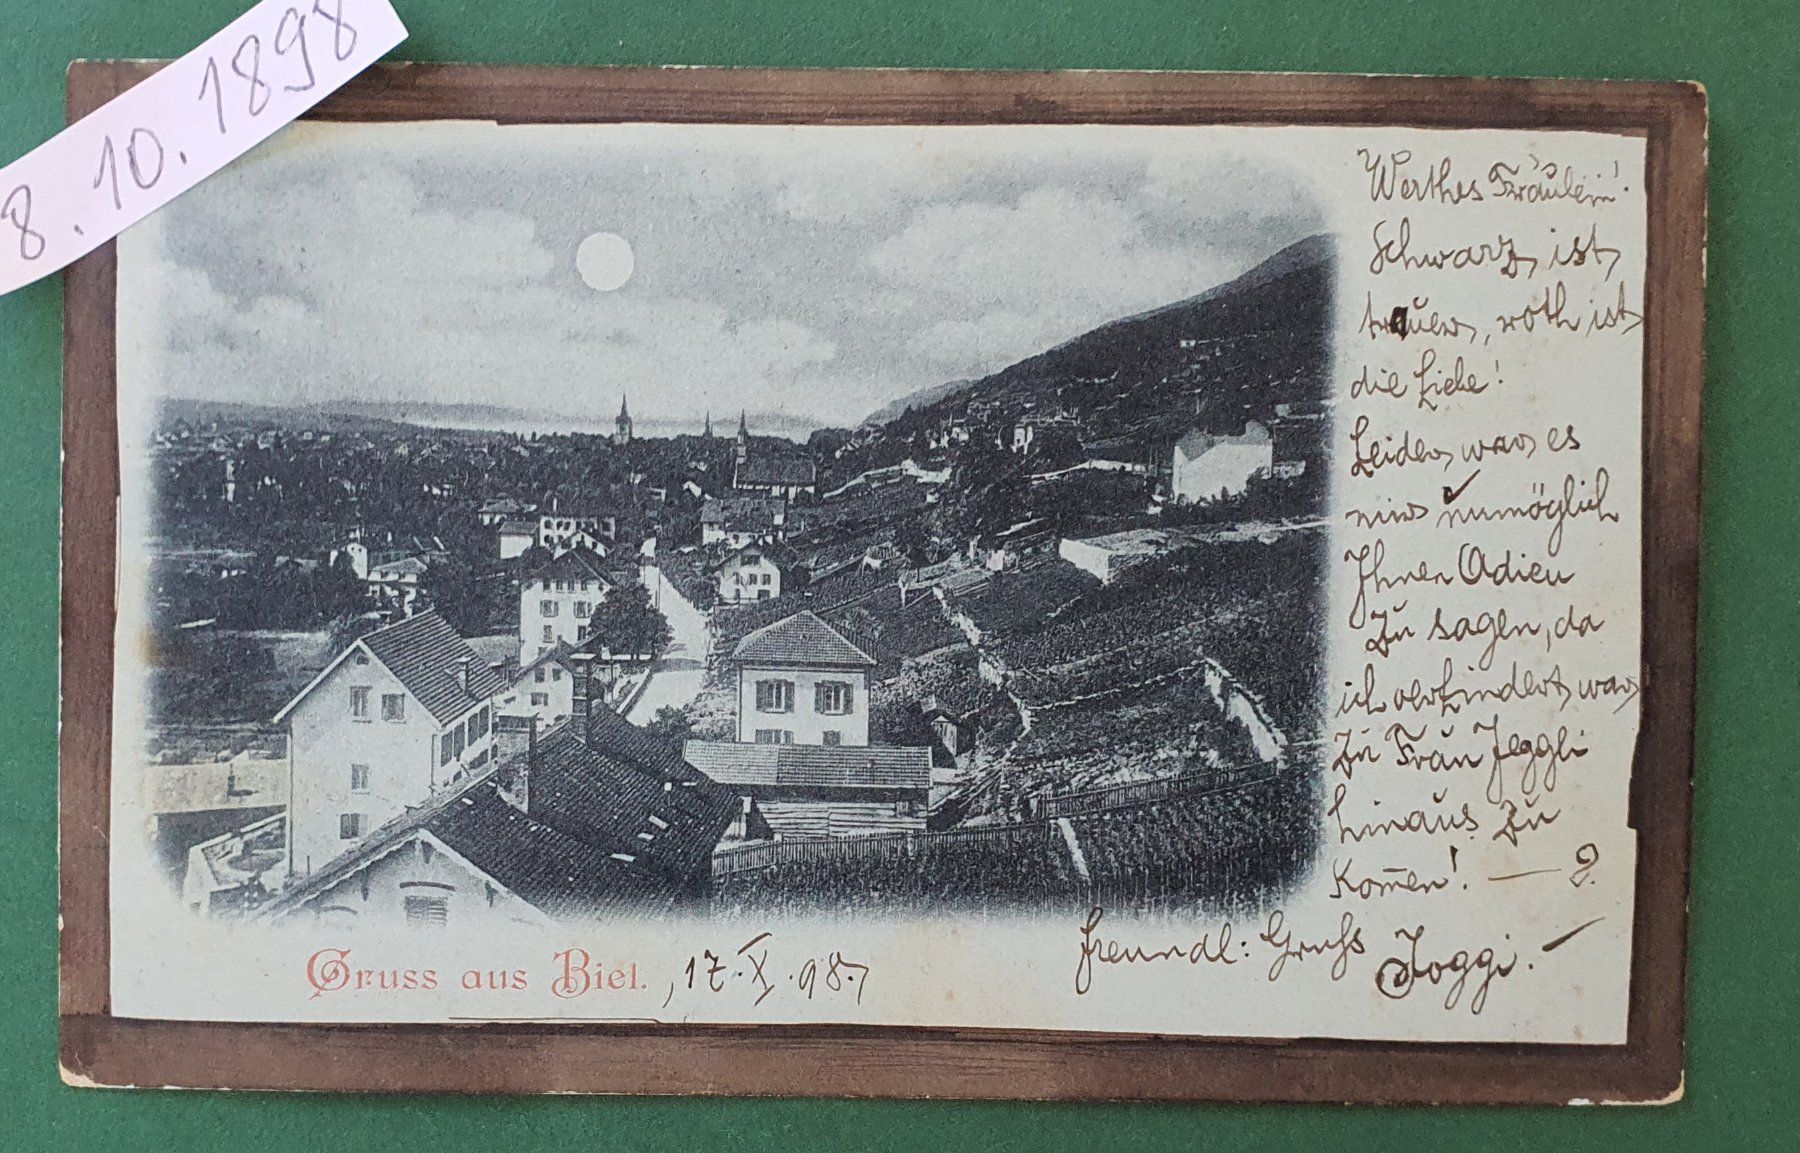 8.10.1898
Werthes Fräulein!
Schwarz ist
trauer, roth ist
die Liebe!
Leider war es
mir unmöglich
Ihnen Adieu
zu sagen, da
ich verhindert war
zu Frau Jeggli
hinaus zu
kom̄en! —
freundl: Gruss Joggi. —
Gruss aus Biel. , 17.X.98.